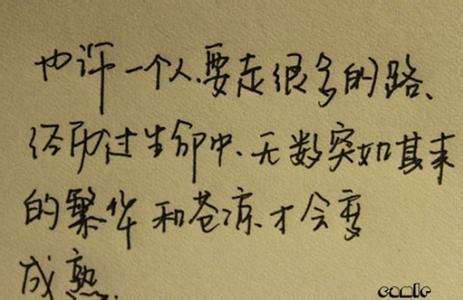 也许一个人、要走很多的路、
经历过生命中、无数突如其来
的繁华和苍凉才会变
成熟.
comic